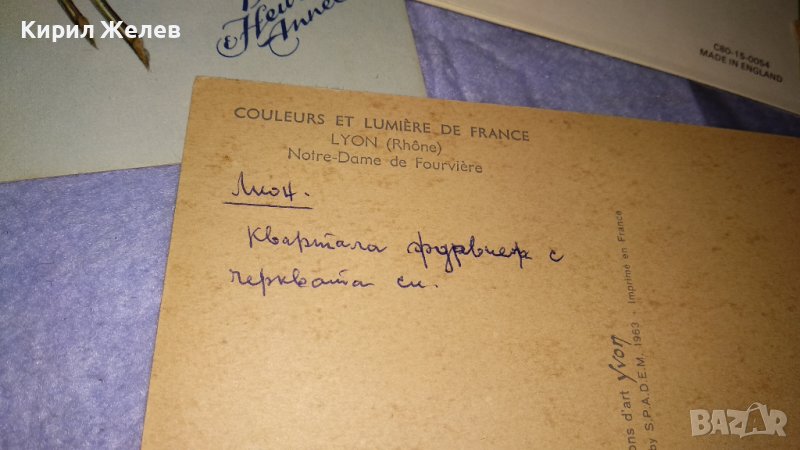 Кирил Желев
Heur
Année
C80-15-0054
MADE IN ENGLAND
COULEURS ET LUMIÈRE DE FRANCE
LYON (Rhône)
Notre-Dame de Fourvière
Лион.
Квартала фурвиер с
черквата си.
ons d'art Yvon
by S.P.A.D.E.M. 1963 - Imprimé en France
BAZAR